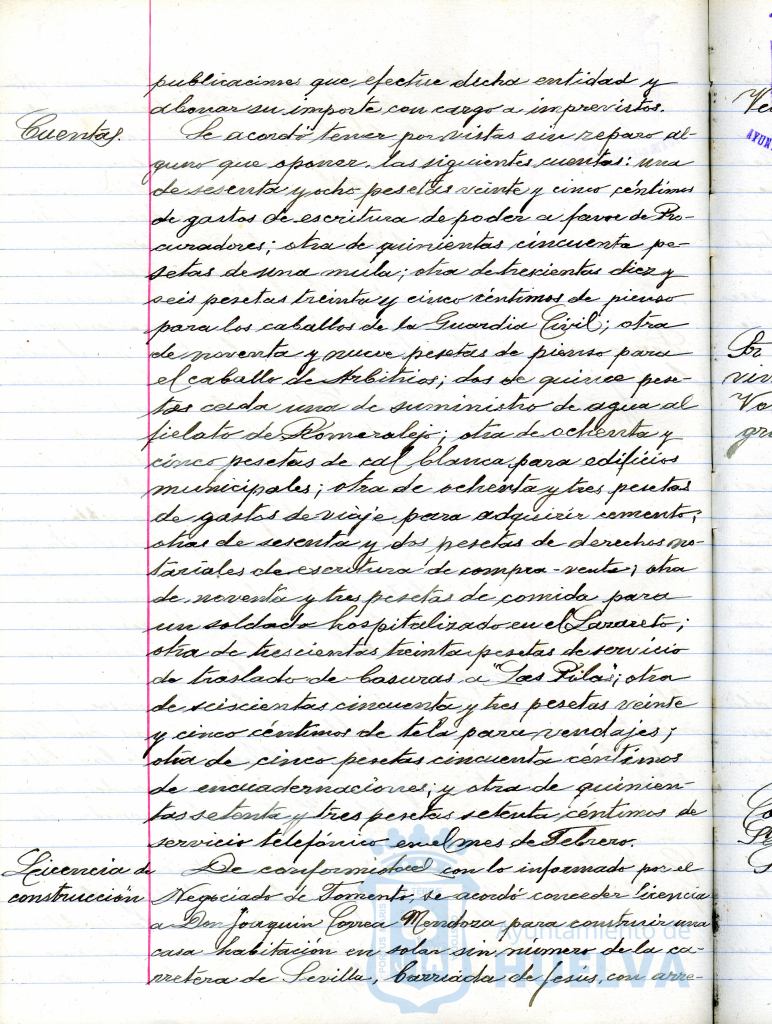 publicaciones que efectue dicha entidad y
abonar su importe con cargo a imprevistos.
Cuentas.
Se acordó tener por vistas sin reparo al-
guno que oponer las siguientes cuentas: una
de sesenta y ocho pesetas veinte y cinco céntimos
de gastos de escritura de poder a favor de Pro-
curadores; otra de quinientas cincuenta pe-
setas de una mula; otra de trescientas diez y
seis pesetas treinta y cinco céntimos de pienso
para los caballos de la Guardia Civil; otra
de noventa y nueve pesetas de pienso para
el caballo de Arbitrios; dos de quince pese-
tas cada una de suministro de agua al
fielato de Romeralejo; otra de ochenta y
cinco pesetas de cal blanca para edificios
municipales; otra de ochenta y tres pesetas
de gastos de viaje para adquirir cemento;
otras de sesenta y dos pesetas de derechos no-
tariales de escritura de compra-venta; otra
de noventa y tres pesetas de comida para
un soldado hospitalizado en el Lazareto;
otra de trescientas treinta pesetas de servicio
de traslado de basuras a "Las Pilas"; otra
de seiscientas cincuenta y tres pesetas veinte
y cinco céntimos de tela para vendajes;
otra de cinco pesetas cincuenta céntimos
de encuadernaciones; y otra de quinien-
tas setenta y tres pesetas setenta céntimos de
servicio telefónico en el mes de Febrero.
Licencia de
construcción
De conformidad con lo informado por el
Negociado de Fomento, se acordó conceder licencia
a Don Joaquin Correa Mendoza para construir una
casa habitación en solar sin número de la ca-
rretera de Sevilla, barriada de Jesús, con arre-
Ayuntamiento de
HUELVA